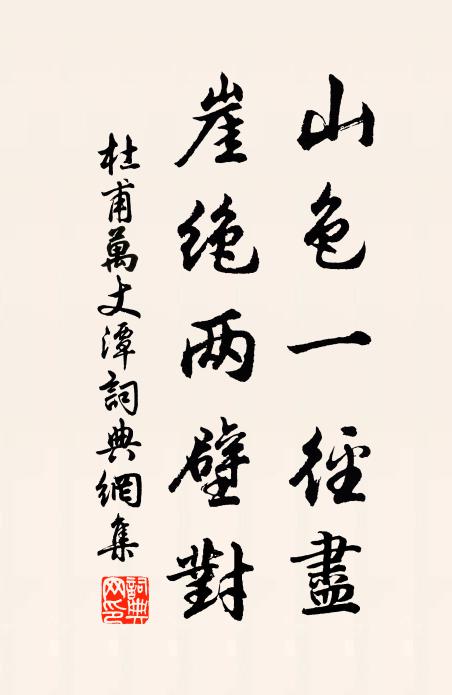 山色一徑盡
崖绝两壁對
杜甫萬丈潭詞典網集
詞典網印